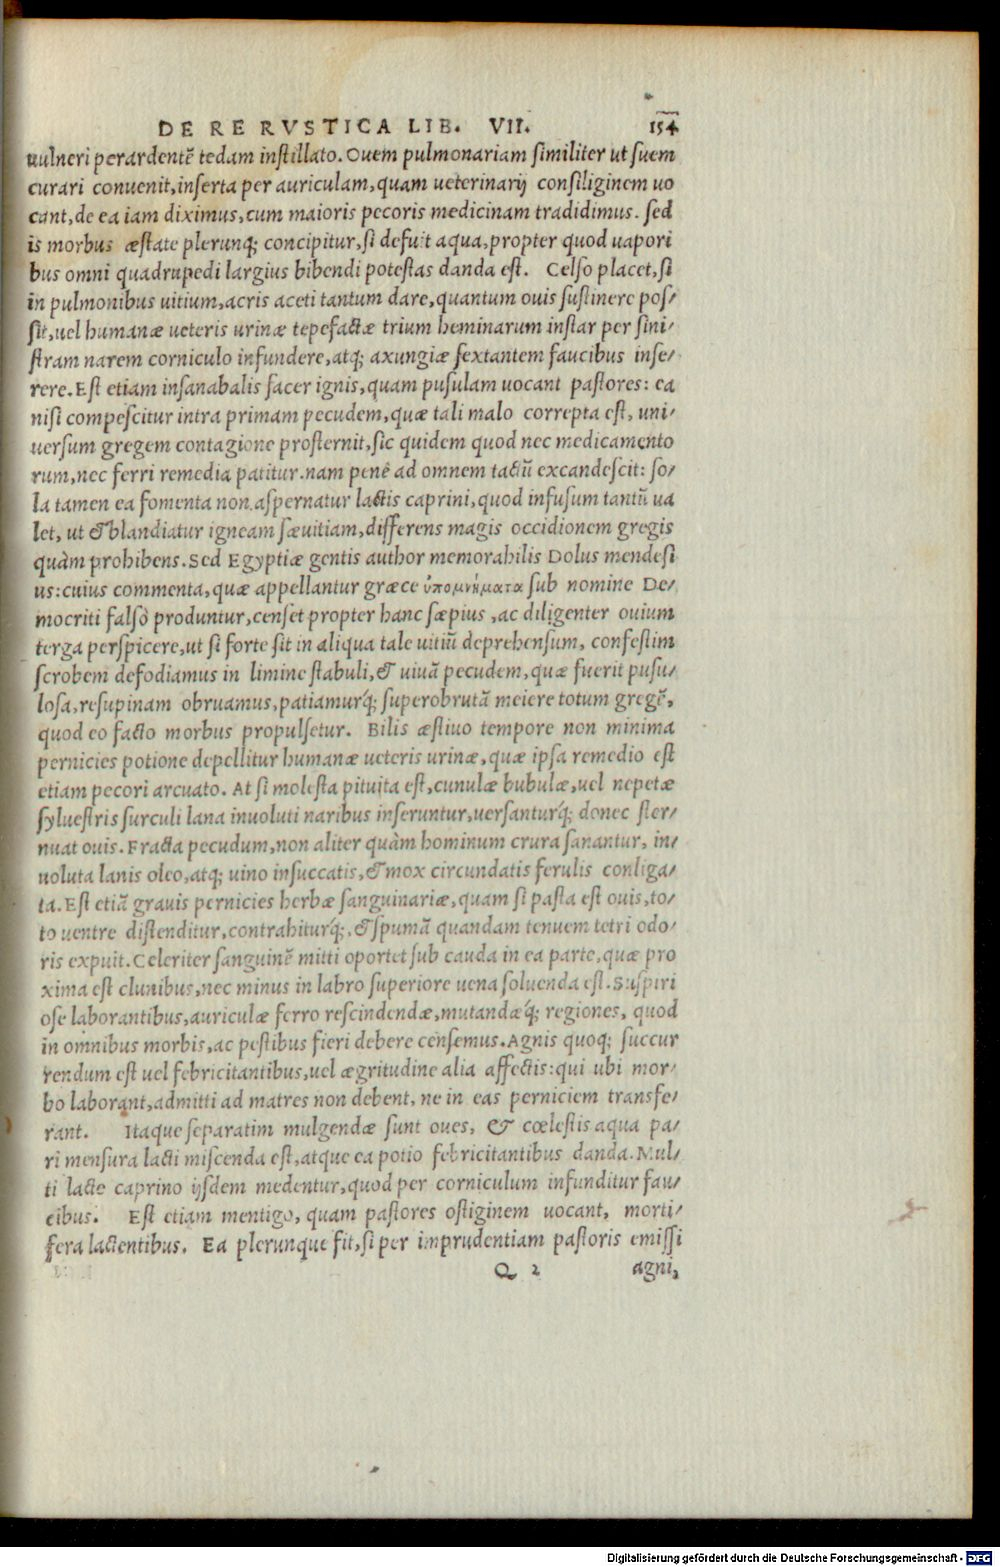 DE RE RVSTICA LIB. VII. 154
uulneri perardentẽ tedam instillato. Ouem pulmonariam similiter ut suem
curari conuenit, inserta per auriculam, quam ueterinarij consiliginem uo
cant, de ea iam diximus, cum maioris pecoris medicinam tradidimus. sed
is morbus æstate plerunq; concipitur, si defuit aqua, propter quod uapori
bus omni quadrupedi largius bibendi potestas danda est. Celso placet, si
in pulmonibus uitium, acris aceti tantum dare, quantum ouis sustinere pos/
sit, uel humanæ ueteris urinæ tepefactæ trium heminarum instar per sini/
stram narem corniculo infundere, atq; axungiæ sextantem faucibus inse/
rere. Est etiam insanabalis sacer ignis, quam pusulam uocant pastores: ea
nisi compescitur intra primam pecudem, quæ tali malo correpta est, uni/
uersum gregem contagione prosternit, sic quidem quod nec medicamento
rum, nec ferri remedia patitur. nam penê ad omnem tactũ excandescit: so/
la tamen ea fomenta non aspernatur lactis caprini, quod infusum tantũ ua
let, ut & blandiatur igneam sæuitiam, differens magis occidionem gregis
quàm prohibens. Sed Egyptiæ gentis author memorabilis Dolus mendesi
us: cuius commenta, quæ appellantur græce ὑπομνήματα sub nomine De/
mocriti falsò produntur, censet propter hanc sæpius, ac diligenter ouium
terga perspicere, ut si forte sit in aliqua tale uitiũ deprehensum, confestim
scrobem defodiamus in limine stabuli, & uiuã pecudem, quæ fuerit pusu/
losa, resupinam obruamus, patiamurq́; superobrutã meiere totum gregẽ,
quod eo facto morbus propulsetur. Bilis æstiuo tempore non minima
pernicies potione depellitur humanæ ueteris urinæ, quæ ipsa remedio est
etiam pecori arcuato. At si molesta pituita est, cunulæ bubulæ, uel nepetæ
syluestris surculi lana inuoluti naribus inseruntur, uersanturq́; donec ster/
nuat ouis. Fracta pecudum, non aliter quàm hominum crura sanantur, in/
uoluta lanis oleo, atq; uino insuccatis, & mox circundatis ferulis conliga/
ta. Est etiã grauis pernicies herbæ sanguinariæ, quam si pasta est ouis, to/
to uentre distenditur, contrahiturq́;, & spumã quandam tenuem tetri odo/
ris expuit. Celeriter sanguinẽ mitti oportet sub cauda in ea parte, quæ pro
xima est clunibus, nec minus in labro superiore uena soluenda est. Suspiri
ose laborantibus, auriculæ ferro rescindendæ, mutandæq́; regiones, quod
in omnibus morbis, ac pestibus fieri debere censemus. Agnis quoq; succur
rendum est uel febricitantibus, uel ægritudine alia affectis: qui ubi mor/
bo laborant, admitti ad matres non debent, ne in eas perniciem transfe/
rant. Itaque separatim mulgendæ sunt oues, & cœlestis aqua pa/
ri mensura lacti miscenda est, atque ea potio febricitantibus danda. Mul/
ti lacte caprino ijsdem medentur, quod per corniculum infunditur fau/
cibus. Est etiam mentigo, quam pastores ostiginem uocant, morti/
fera lactentibus. Ea plerunque fit, si per imprudentiam pastoris emissi
Q 2 agni,
Digitalisierung gefördert durch die Deutsche Forschungsgemeinschaft - DFG